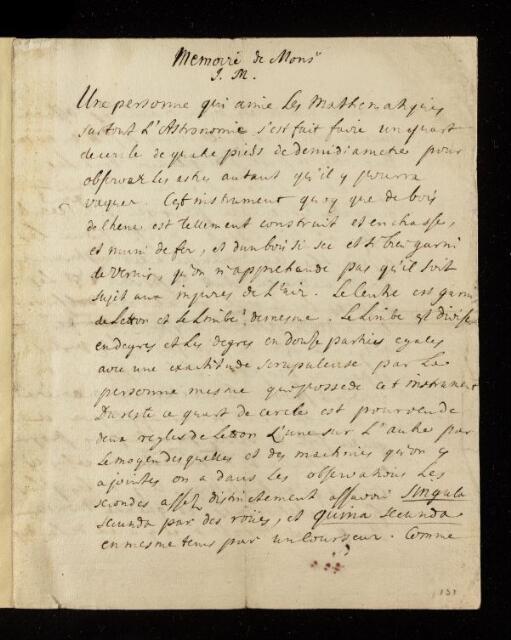 Memoire de Mons^r
J. M.
Une personne qui aime Les Mathematiques
surtout L'Astronomie s'est fait faire un quart
de cercle de quatre pieds de demidiametre pour
observer les astres autant qu'il y pourra
vaquer. Cest instrument quoy que de bois
de chene est tellement construit et enchasse,
et muni de fer, et d'un bois si sec et si bien garni
de vernis, qu'on n'apprehende pas qu'il soit
sujet aux injures de L'air. Le Centre est garni
de Letton et Le Limbe de mesme. Le Limbe est divisé
en degres et Les degres en douse parties egales
avec une exactitude scrupuleuse par La
personne mesme qui possede cet instrument
Du reste ce quart de cercle est pourveu de
deux regles de Letton L'une sur L'autre par
Le moyen des quelles et des machines qu'on y
a jointes on a dans Les observations Les
secondes assez distinctement assavoir singula
secunda par des roües, et quina secunda
en mesme tems par un Courseur. Comme
131